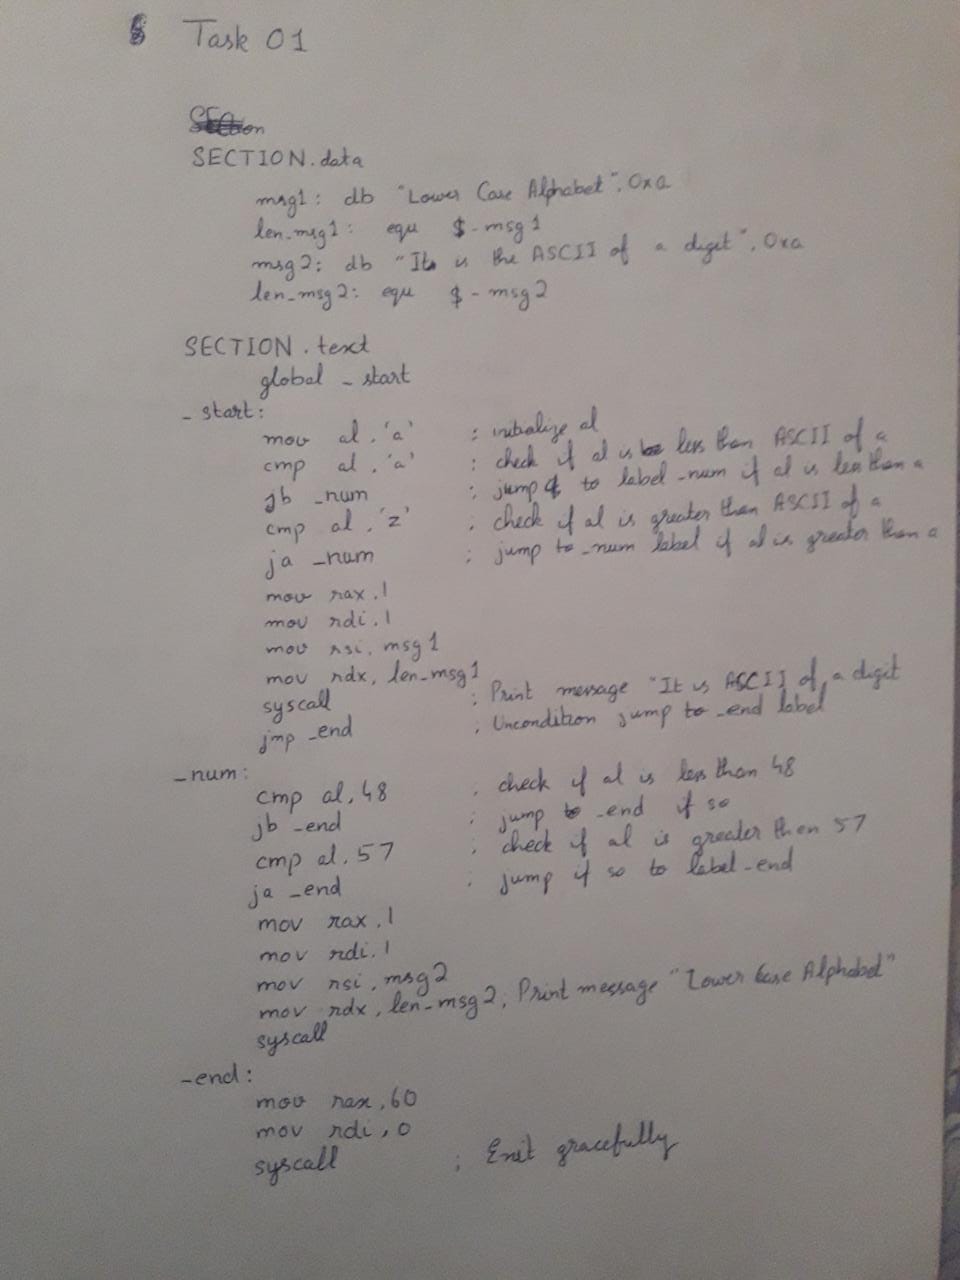 Task 01
SECtion
SECTION.data
msg1: db "Lower Case Alphabet", 0xa
len_msg1: equ $-msg1
msg2: db "It is the ASCII of a digit", 0xa
len_msg2: equ $-msg2
SECTION .text
global _start
_start:
mov al, 'a' ; initialize al
cmp al, 'a' ; check if al is less than ASCII of a
jb _num ; jump to label _num if al is less than a
cmp al, 'z' ; check if al is greater than ASCII of a
ja _num ; jump to _num label if al is greater than a
mov rax, 1
mov rdi, 1
mov rsi, msg1
mov rdx, len_msg1
syscall ; Print message "It is ASCII of a digit
jmp _end ; Uncondition jump to _end label
_num:
cmp al, 48 ; check if al is less than 48
jb _end ; jump to _end if so
cmp al, 57 ; check if al is greater then 57
ja _end ; jump if so to label _end
mov rax, 1
mov rdi, 1
mov rsi, msg2
mov rdx, len_msg2; Print message "Lower Case Alphabet"
syscall
_end:
mov rax, 60
mov rdi, 0
syscall ; Exit gracefully